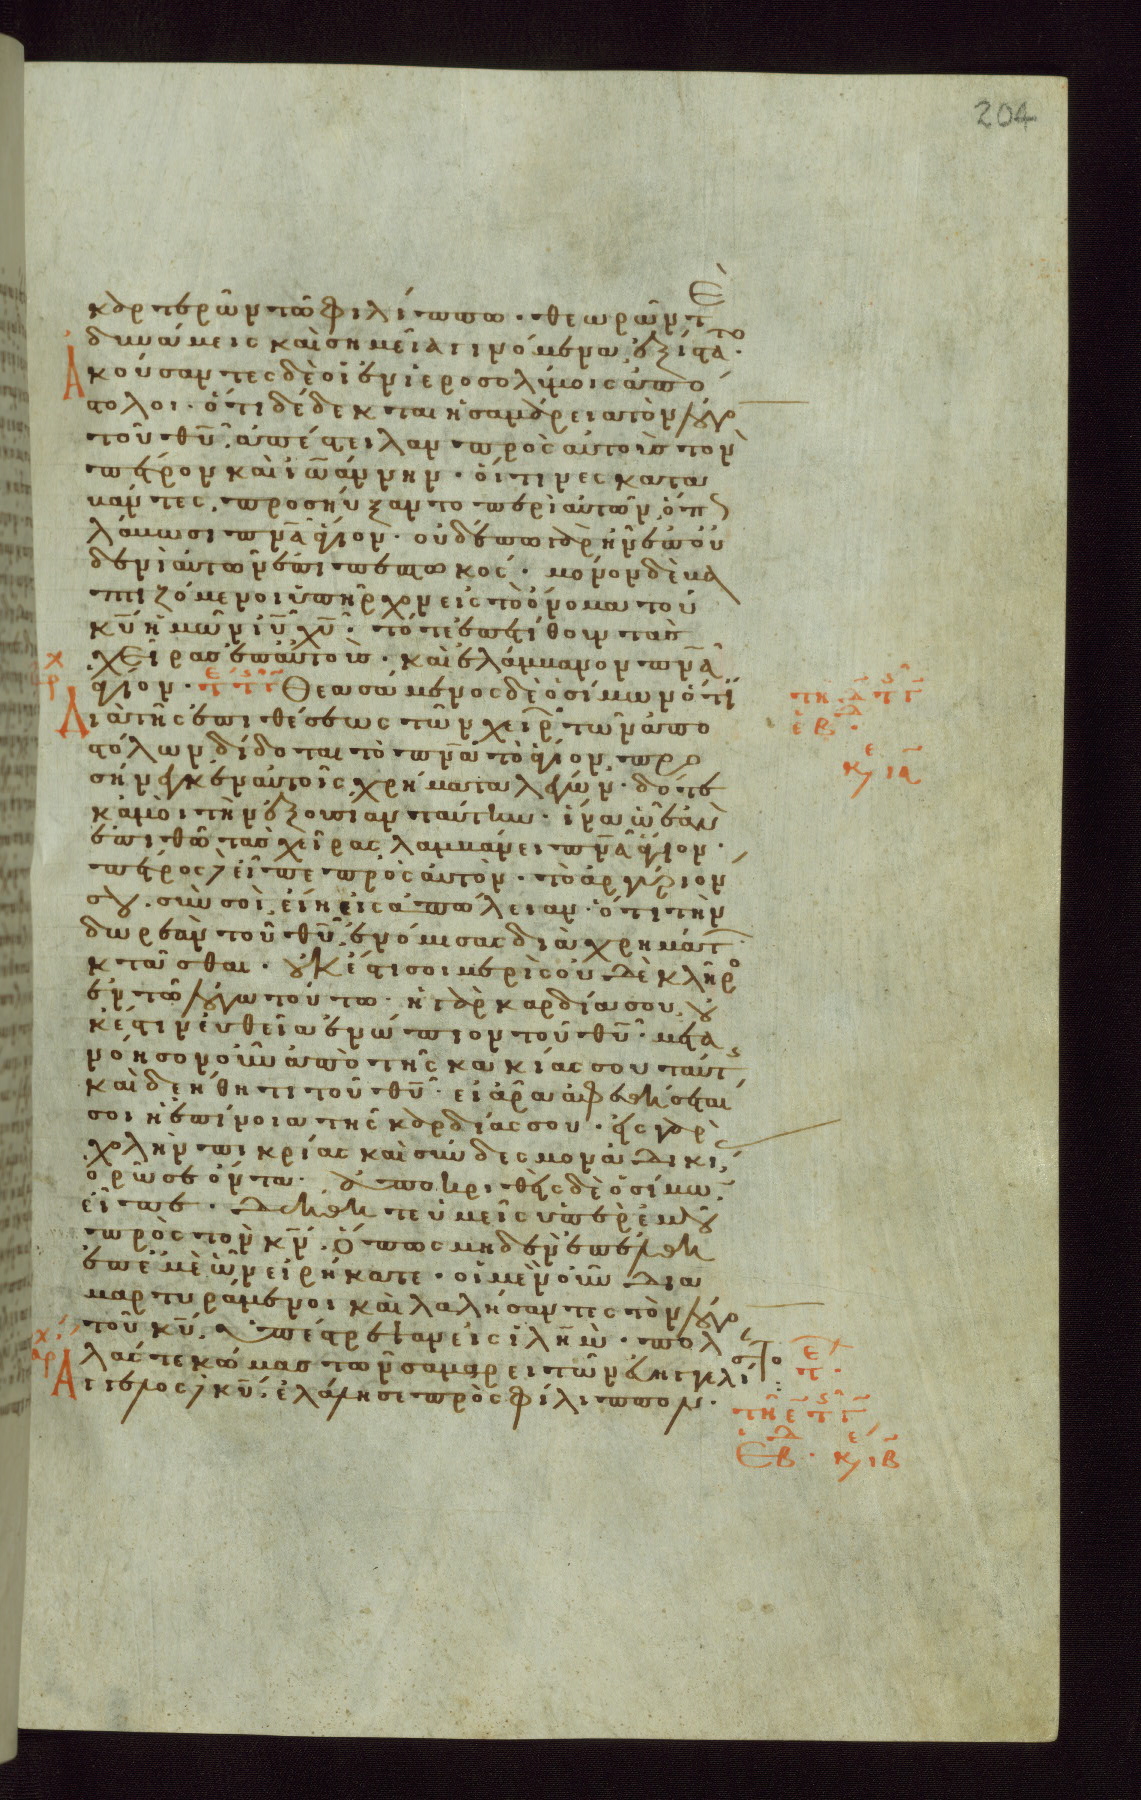 204
καρτερῶν τῶ φιλίππω· θεωρῶν τὲ
δυνάμεις καὶ σημεῖα γινόμενα, ἐξίστατο·
Ἀκούσαντες δὲ οἱ ἐν ἱεροσολύμοις ἀπό
στολοι· ὅτι δέδεκται ἡ σαμάρεια τὸν λόγον
τοῦ θυ̅· ἀπέστειλαν πρὸς αὐτοὺς τὸν
πέτρον καὶ ἰωάννην· οἵτινες κατα
βάντες, προσηύξαντο περὶ αὐτῶν, ὅπως
λάβωσι πνα̅ ἅγιον· οὐδέπω γὰρ ἦν ἐπ' οὐ
δενὶ αὐτῶν ἐπιπεπτωκός· μόνον δὲ βα
πτιζόμενοι ὑπῆρχον εἰς τὸ ὄνομα τοῦ
κυ̅ ἡμῶν ιυ̅ χυ̅· τότε ἐπετίθουν τὰς
χεῖρας ἐπ' αὐτοὺς· καὶ ἐλάμβανον πνα̅
ἅγιον· Θεασάμενος δὲ ὁ σίμων ὅτι
Διὰ τῆς ἐπιθέσεως τῶν χειρ τῶν ἀπο
στόλων δίδοται τὸ πνα̅ τὸ ἅγιον, προ
σήνεγκεν αὐτοῖς χρήματα λέγων· δότε
κἀμοὶ τὴν ἐξουσίαν ταύτην· ἵνα ὧ ἐὰν
ἐπιθῶ τὰς χεῖρας, λαμβάνει πνα̅ ἅγιον·
πέτρος δὲ εἶπε πρὸς αὐτὸν· τὸ ἀργύριον
σου, σὺν σοὶ εἴη εἰς ἀπώλειαν· ὅτι τὴν
δωρεὰν τοῦ θυ̅, ἐνόμισας διὰ χρημάτ
κτᾶσθαι· οὐκ ἔστι σοι μερὶς οὐδὲ κλῆρος
ἐν τῶ λόγω τούτω· ἡ γὰρ καρδία σου, οὐ
κ ἔστιν εὐθεῖα ἐνώπιον τοῦ θυ̅· μετα
νόησον οὖν ἀπὸ τῆς κακίας σου ταύτης
καὶ δεήθητι τοῦ θυ̅· εἰ ἄρα ἀφεθήσεται
σοι ἡ ἐπίνοια τῆς καρδίας σου· εἰς γὰρ
χολὴν πικρίας καὶ σύνδεσμον ἀδικίας
ὁρῶ σε ὄντα· ἀποκριθεὶς δὲ ὁ σίμων
εἶπε· δεήθητε ὑμεῖς ὑπὲρ ἐμοῦ
πρὸς τὸν κν̅· ὅπως μηδὲν ἐπέλθη
ἐπ' ἐμὲ ὧν εἰρήκατε· οἱ μὲν οὖν δια
μαρτυράμενοι καὶ λαλήσαντες τὸν λόγον
τοῦ κυ̅, ὑπέστρεψαν εἰς ιλημ· πολ
λάς τε κώμας τῶν σαμαρειτῶν εὐηγγελίσαντο
Ἄγγελος δὲ κυ̅, ἐλάλησε πρὸς φίλιππον·